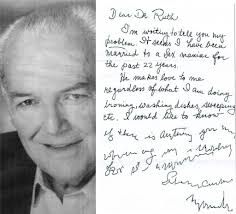 Dear Dr Ruth
I'm writing to tell you my
problem. It seems I have been
married to a sex maniac for
the past 22 years.
He makes love to me
regardless of what I am doing
ironing, washing dishes, sweeping
etc. I would like to know
if there is anything you